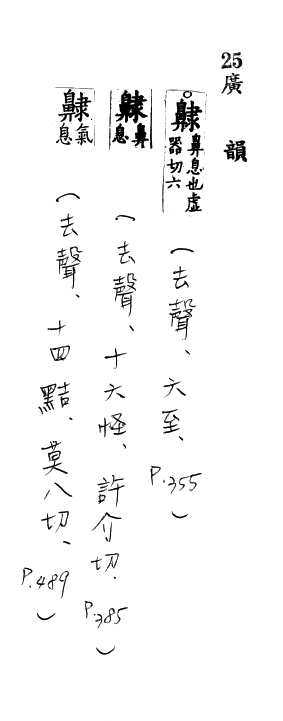 25廣韻
齂鼻息也虛器切六(去聲、六至、P.355)
齂鼻息(去聲、十六怪、許介切.P.385)
齂氣息(去聲、十四黠、莫八切、P.489)